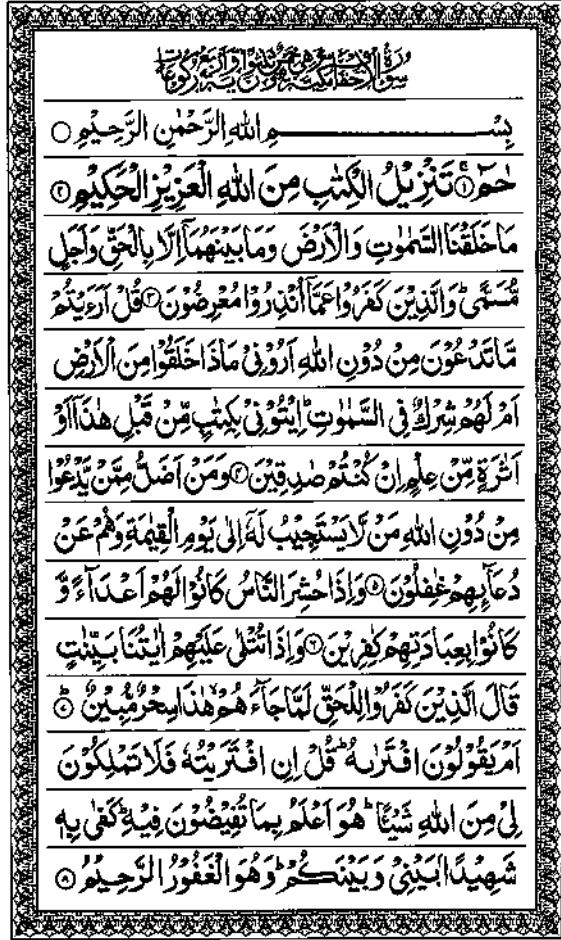 سورة الاحقاف مكية وهي خمس وثلثون اية واربع ركوعات
بِسْمِ اللهِ الرَّحْمٰنِ الرَّحِيْمِ ○
حٰمٓ ۚ﴿۱﴾ تَنْزِيْلُ الْكِتٰبِ مِنَ اللهِ الْعَزِيْزِ الْحَكِيْمِ ﴿۲﴾
مَا خَلَقْنَا السَّمٰوٰتِ وَالْاَرْضَ وَمَا بَيْنَهُمَاۤ اِلَّا بِالْحَقِّ وَاَجَلٍ
مُّسَمًّى ؕ وَالَّذِيْنَ كَفَرُوْا عَمَّاۤ اُنْذِرُوْا مُعْرِضُوْنَ ﴿۳﴾ قُلْ اَرَءَيْتُمْ
مَّا تَدْعُوْنَ مِنْ دُوْنِ اللهِ اَرُوْنِيْ مَاذَا خَلَقُوْا مِنَ الْاَرْضِ
اَمْ لَهُمْ شِرْكٌ فِي السَّمٰوٰتِ ؕ اِيْتُوْنِيْ بِكِتٰبٍ مِّنْ قَبْلِ هٰذَاۤ اَوْ
اَثٰرَةٍ مِّنْ عِلْمٍ اِنْ كُنْتُمْ صٰدِقِيْنَ ﴿۴﴾ وَمَنْ اَضَلُّ مِمَّنْ يَّدْعُوْا
مِنْ دُوْنِ اللهِ مَنْ لَّا يَسْتَجِيْبُ لَهٗۤ اِلٰى يَوْمِ الْقِيٰمَةِ وَهُمْ عَنْ
دُعَآىِٕهِمْ غٰفِلُوْنَ ﴿۵﴾ وَاِذَا حُشِرَ النَّاسُ كَانُوْا لَهُمْ اَعْدَآءً وَّ
كَانُوْا بِعِبَادَتِهِمْ كٰفِرِيْنَ ﴿۶﴾ وَاِذَا تُتْلٰى عَلَيْهِمْ اٰيٰتُنَا بَيِّنٰتٍ
قَالَ الَّذِيْنَ كَفَرُوْا لِلْحَقِّ لَمَّا جَآءَهُمْ ۙ هٰذَا سِحْرٌ مُّبِيْنٌ ﴿۷﴾ؕ
اَمْ يَقُوْلُوْنَ افْتَرٰىهُ ؕ قُلْ اِنِ افْتَرَيْتُهٗ فَلَا تَمْلِكُوْنَ
لِيْ مِنَ اللهِ شَيْـًٔا ؕ هُوَ اَعْلَمُ بِمَا تُفِيْضُوْنَ فِيْهِ ؕ كَفٰى بِهٖ
شَهِيْدًۢا بَيْنِيْ وَبَيْنَكُمْ ؕ وَهُوَ الْغَفُوْرُ الرَّحِيْمُ ﴿۸﴾